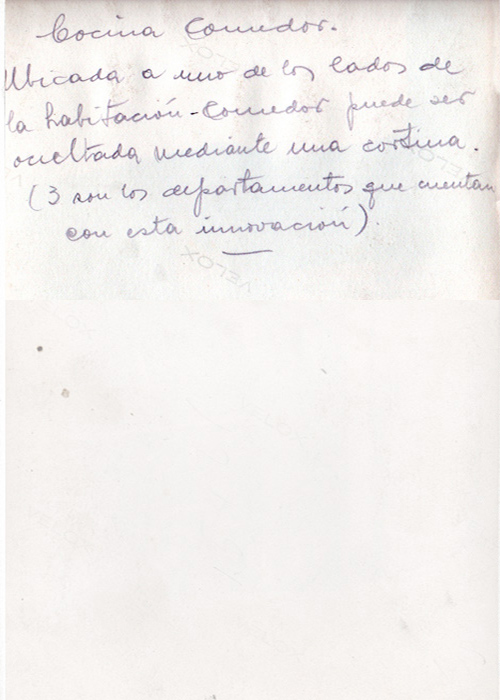 Cocina Comedor.
Ubicada a uno de los lados de
la habitación-comedor puede ser
ocultada mediante una cortina.
(3 son los departamentos que cuentan
con esta innovación).
VELOX